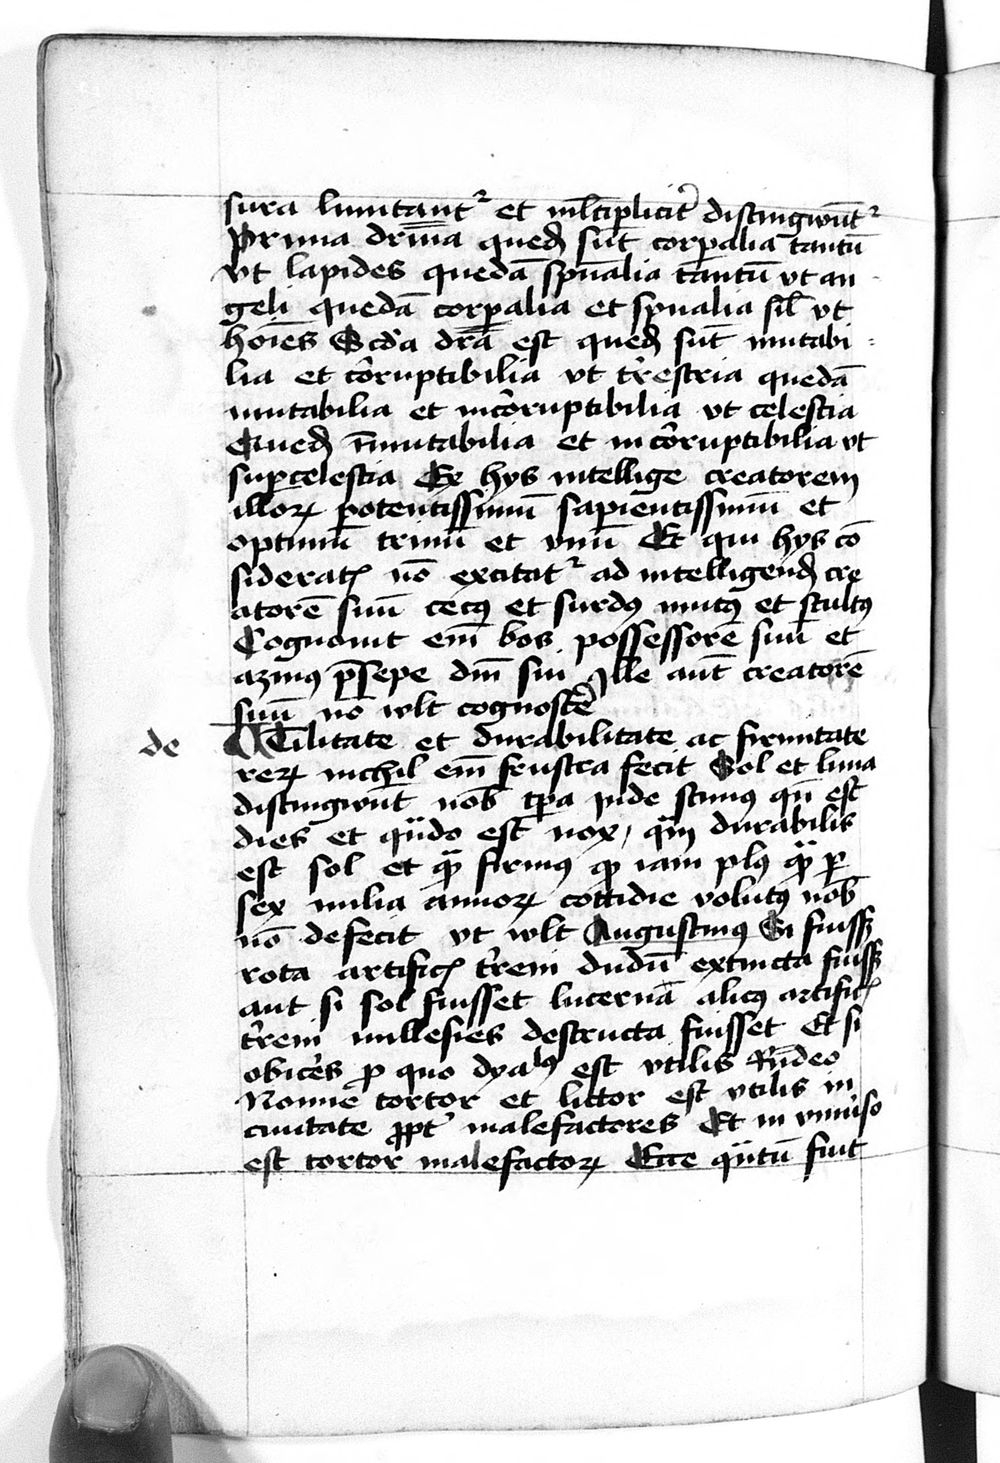 sura limitant᷑ et ml̄tiplicit̉ distingwūt᷑
Prima drn̄ia quedꝫ sūt corꝑalia tantū
vt lapides quedā spūalia tantū vt an
geli quedā corꝑalia et spūalia sil̄ vt
hoīes Scd̓a dr̄a est quedꝫ sūt mutabi
lia et cōruptibilia vt t̓restria quedā
mutabilia et incōruptibilia vt celestia
Quedꝫ īmutabilia et incōruptibilia vt
suꝑcelestia Ex hys intellige creatorem
illoꝝ potentissimū sapientissimū et
optimū trinū et vnū Et qui hys cō
sideratꝭ nō excitat᷑ ad intelligendꝫ cre
atorē suū cecꝰ et surdꝰ mutꝰ et stultꝰ
Cognouit em̄ bos possessorē suū et
azinꝰ p̄sepe dm̄ sui Ille aūt creatorē
suū nō wlt cognosc̓e
de Vtilitate et durabilitate ac firmitate
reꝝ nichil em̄ frustra fecit Sol et luna
distingwūt nob̄ tꝑa inde scimꝰ qn̄ est
dies et qūdo est nox, qm̄ durabilis
est sol et qͣ̄ firmꝰ qꝫ iam plꝰ qͣ̄ ꝑ
sex milia annoꝝ cottidie volutꝰ nob̄
nō defecit vt wlt Augustinꝰ Si fuissꝫ
rota artificꝭ t̓reni dudū extincta fuissꝫ
aut si sol fuisset lucernā alicꝰ artificꝭ
t̓reni millesies destructa fuisset Et si
obic̓es ꝓ quo dyabꝰ est vtilis Rn̄deo
Nonne tortor et lictor est vtilis in
ciuitate ꝓpt̓ malefactores Et in vniu̓so
est tortor malefactoꝝ Ecce qͣ̄tū fuit